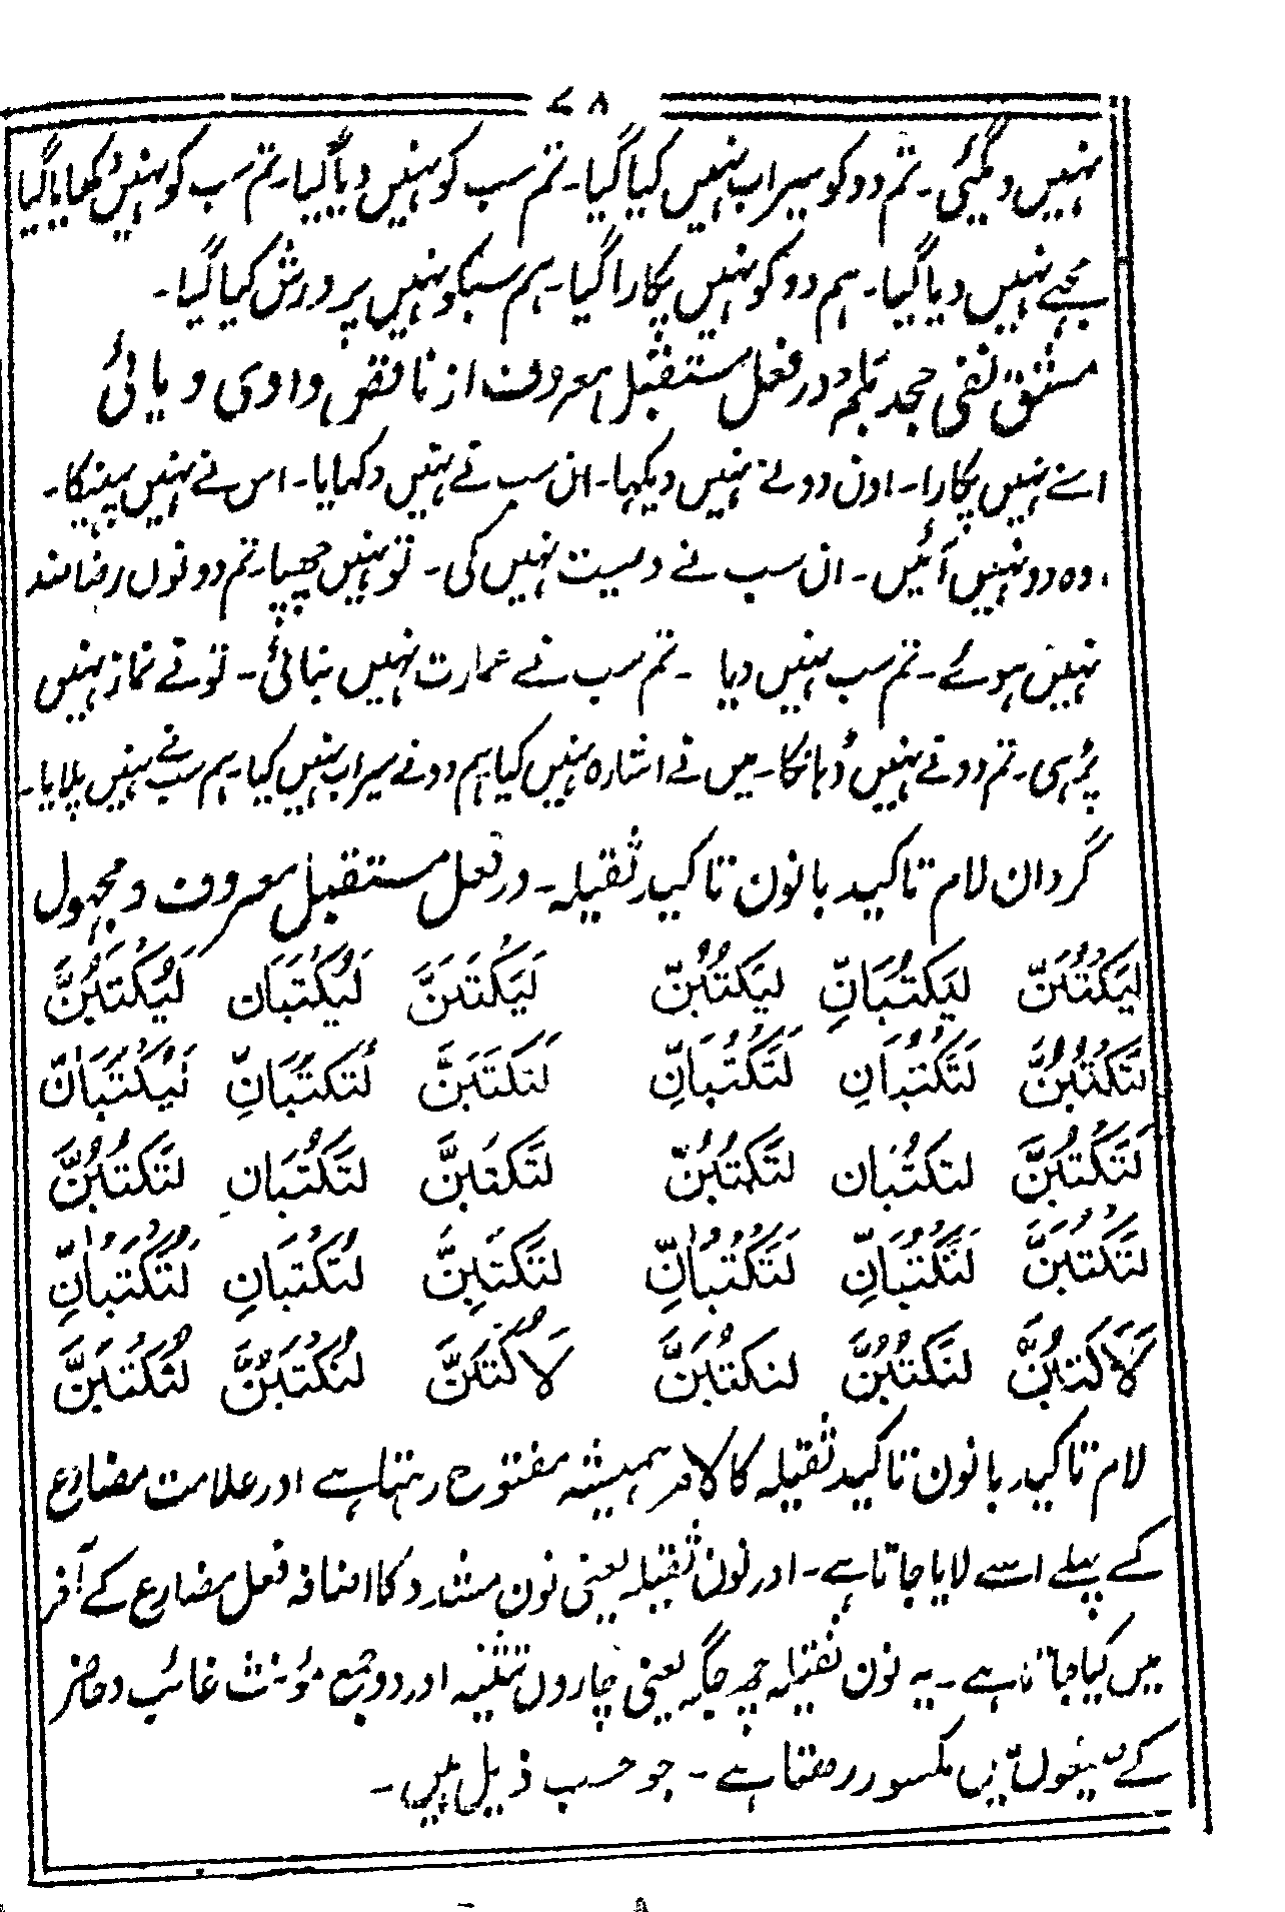 ۷۸
نہیں دیگئی۔ تم دو کو سیراب نہیں کیا گیا۔ تم سب کو نہیں دیا گیا۔ تم سب کو نہیں دکھایا گیا
مجھے نہیں دیا گیا۔ ہم دو کو نہیں پکارا گیا۔ ہم سبکو نہیں پرورش کیا گیا۔
مشق نفی جحد بلم در فعل مستقبل معروف از ناقص واوی و یائی
اسنے نہیں پکارا۔ اون دو نے نہیں دیکھا۔ ان سب نے نہیں دکھایا۔ اس نے نہیں پھینکا۔
وہ دو نہیں آئیں۔ ان سب نے وصیت نہیں کی۔ تو نہیں چھپا۔ تم دونوں رضامند
نہیں ہوئے۔ تم سب نہیں دیا ۔ تم سب نے عمارت نہیں بنائی۔ تو نے نماز نہیں
پڑہی۔ تم دو نے نہیں ڈہانکا۔ میں نے اشارہ نہیں کیا۔ ہم دو نے سیراب نہیں کیا۔ ہم سب نے نہیں پلایا۔
گردان لام تاکید بانون تاکید ثقیلہ۔ در فعل مستقبل معروف و مجہول
لَيَكْتُبَنَّ لَيَكْتُبَانِّ لَيَكْتُبُنَّ لَيُكْتَبَنَّ لَيُكْتَبَانِ لَيُكْتَبُنَّ
لَتَكْتُبَنَّ لَتَكْتُبَانِ لَيَكْتُبْنَانِّ لَتُكْتَبَنَّ لَتُكْتَبَانِّ لَيُكْتَبْنَانِّ
لَتَكْتُبَنَّ لَتَكْتُبَانِ لَتَكْتُبُنَّ لَتُكْتَبَنَّ لَتُكْتَبَانِ لَتُكْتَبُنَّ
لَتَكْتُبِنَّ لَتَكْتُبَانِّ لَتَكْتُبْنَانِّ لَتُكْتَبِنَّ لَتُكْتَبَانِ لَتُكْتَبْنَانِّ
لَاَكْتُبَنَّ لَنَكْتُبَنَّ لَنَكْتُبَنَّ لَاُكْتَبَنَّ لَنُكْتَبَنَّ لَنُكْتَبَنَّ
لام تاکید بانون تاکید ثقیلہ کا لام ہمیشہ مفتوح رہتا ہے اور علامت مضارع
کے پہلے اسے لایا جاتا ہے۔ اور نون ثقیلہ یعنی نون مشدد کا اضافہ فعل مضارع کے آخر
میں کیا جاتا ہے۔ یہ نون ثقیلہ چھ جگہ یعنی چاروں تثنیہ اور دو جمع مؤنث غائب و حاضر
کے صیغوں میں مکسور رہتا ہے۔ جو حسب ذیل ہیں۔